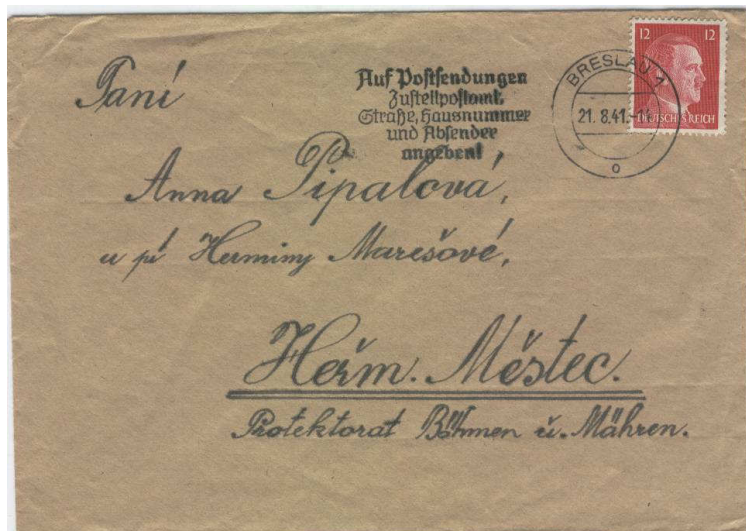 Paní
Auf Postsendungen
Zustellpostamt,
Straße, Hausnummer
und Absender
angeben!
BRESLAU 1
21.8.41.-14
o
12 12
DEUTSCHES REICH
Anna Pipalová,
u pí Herminy Marešové,
Heřm. Městec.
Protektorat Böhmen u. Mähren.